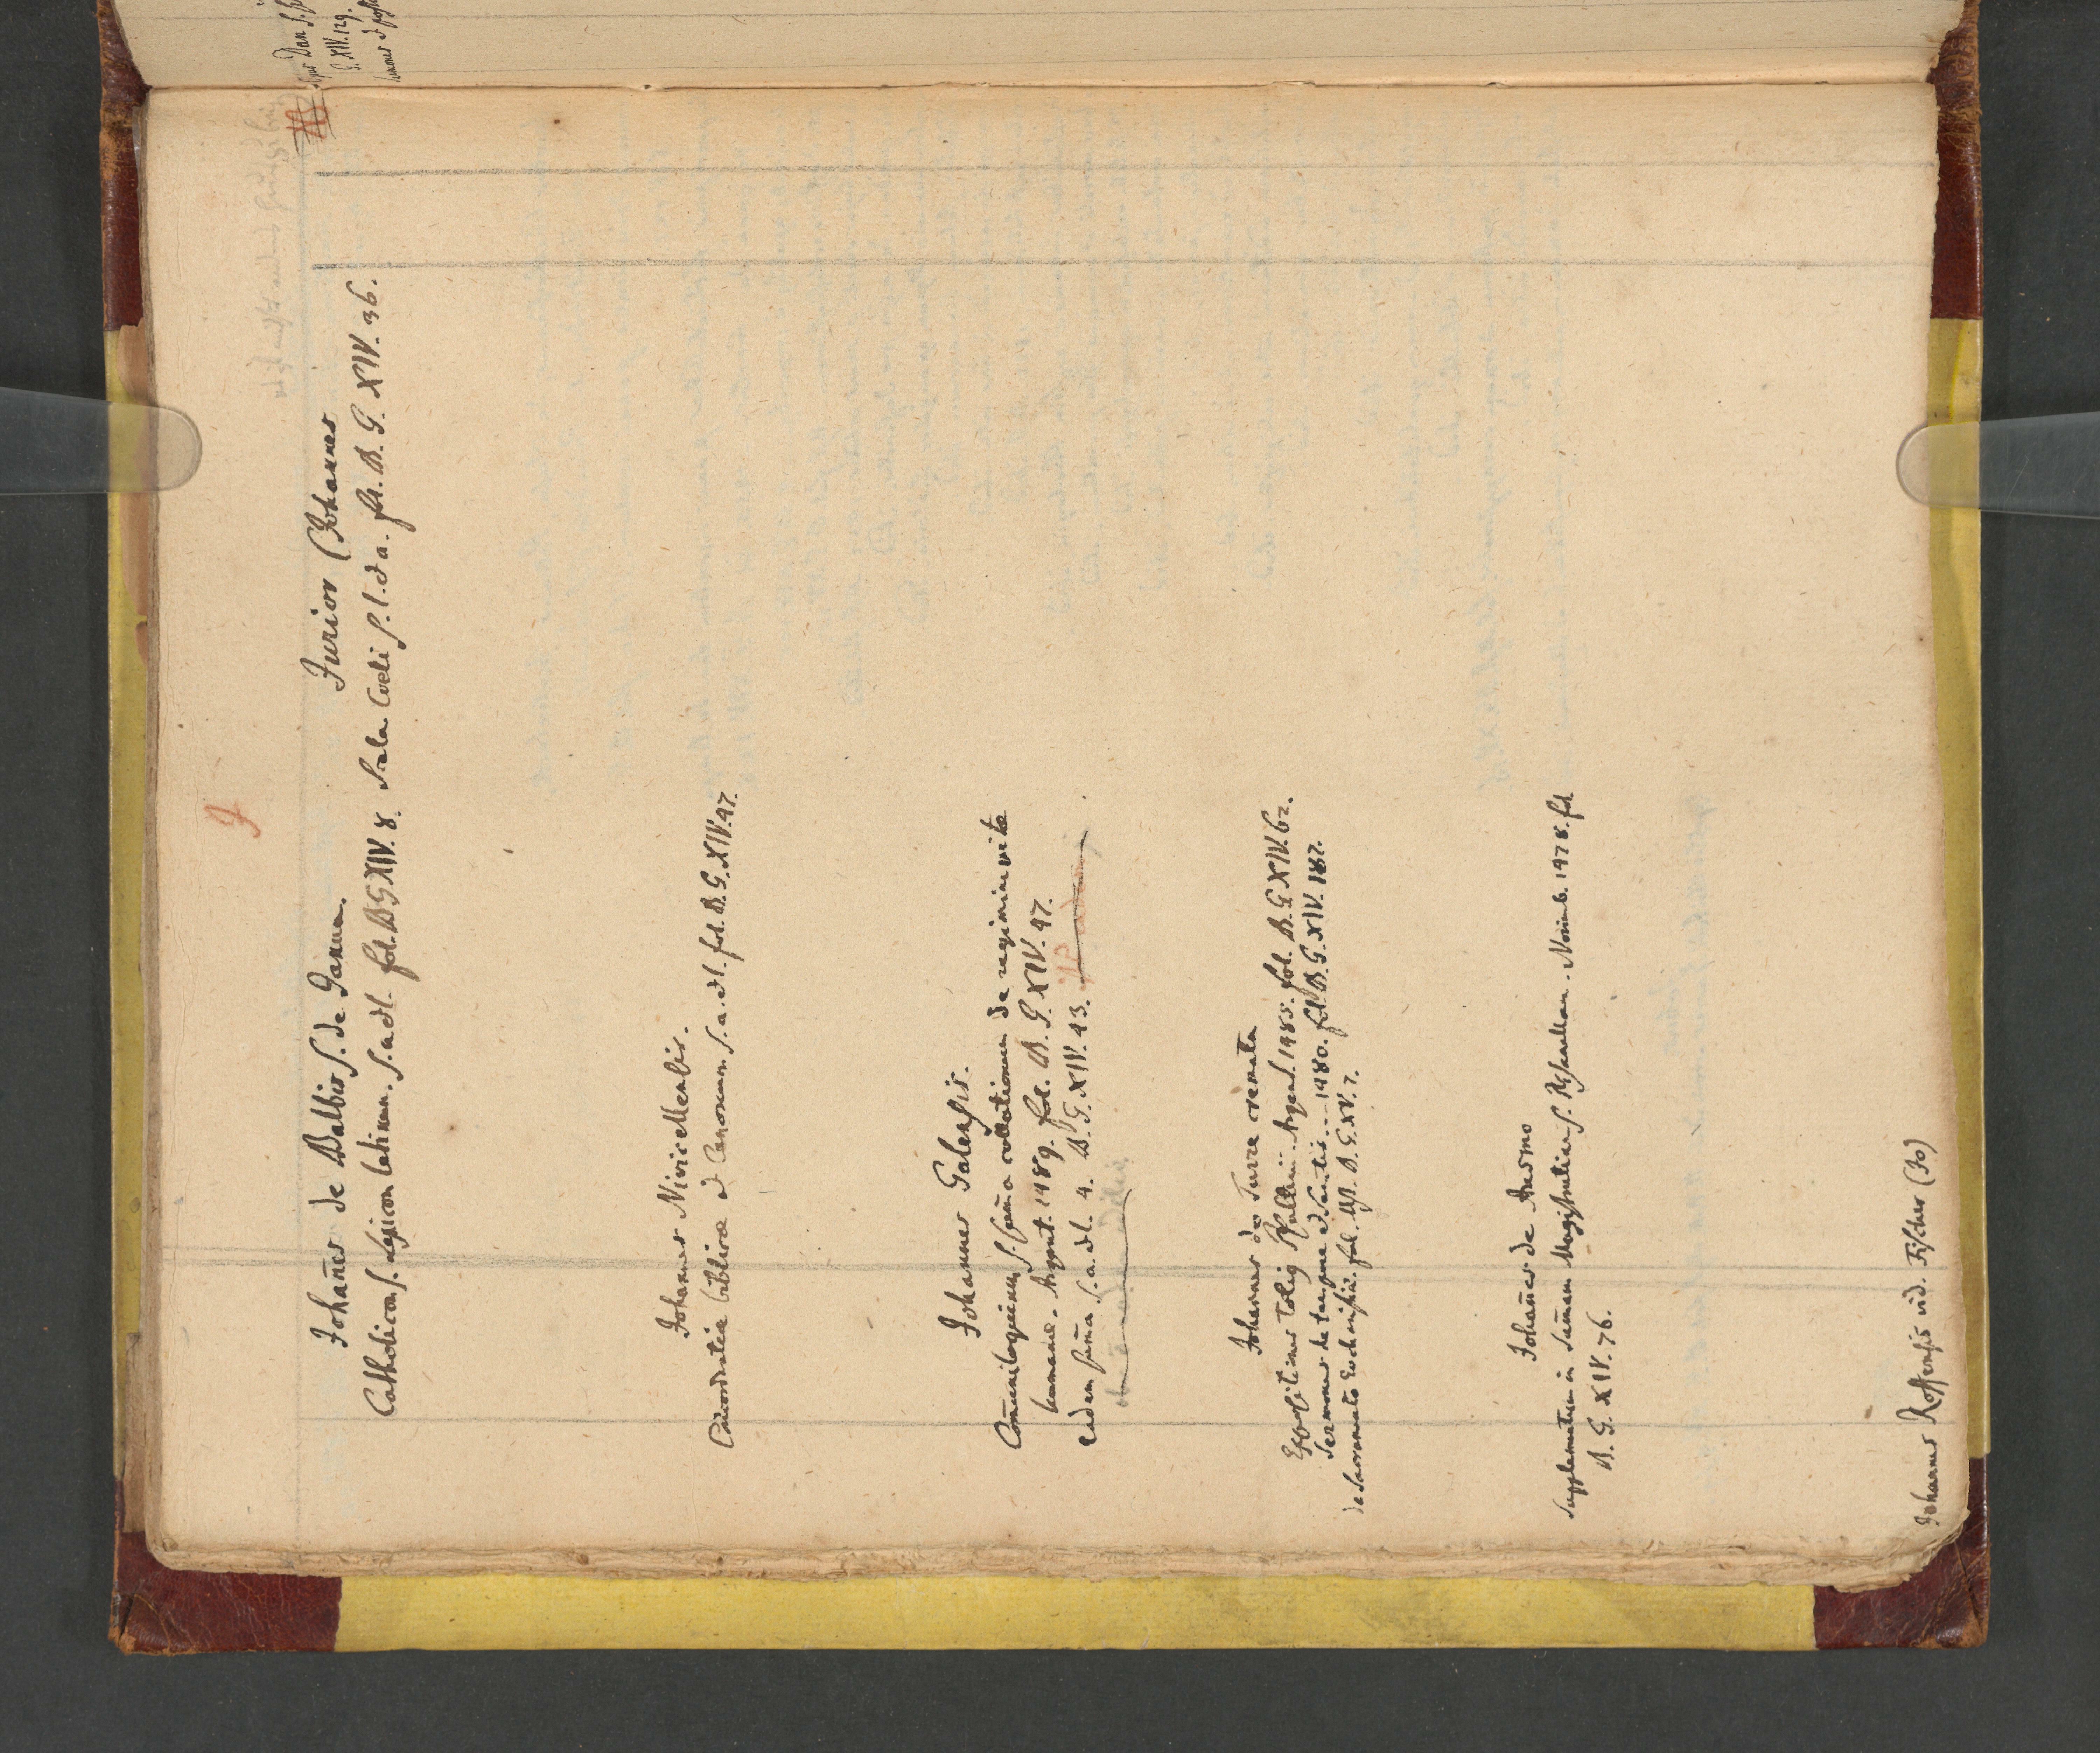 J
Johañes de Balbis s. de Janua.
Catholicon s. Lexicon latinum. s. a et l. fol. B. G. XIV. 8.
Junior (Johannes
Scala Coeli s. l. et a. fol. B. G. XIV. 36.
Johannes Nivicellensis.
Concordatia bibliae et Canonum s. a. et l. fol. B. G. XIV. 47.
Johannes Galensis.
Com̃uniloquium s. sum̃a collationum de regimine vitae
humanae. Argent. 1489. fol. B. G. XIV. 47.
eadem sum̃a s. a. et l. 4. B. G. XIV. 43.
Johannes de Turre cremata
Expositiones totius Psalterii. Argent. 1485. fol. B. G. XIV. 62.
Sermones de tempore et Sanctis --- 1480. fol. B. G. XIV. 187.
de Sacramento Eucharistiae. fol. B. G. XV. 7.
Johañes de Ausmo
Supplementum in Sum̃am Magistrutiae s. Novimb. 1478. fol
B. G. XIV. 76.
Johannes Roffensis vid. Fischer (Jo)